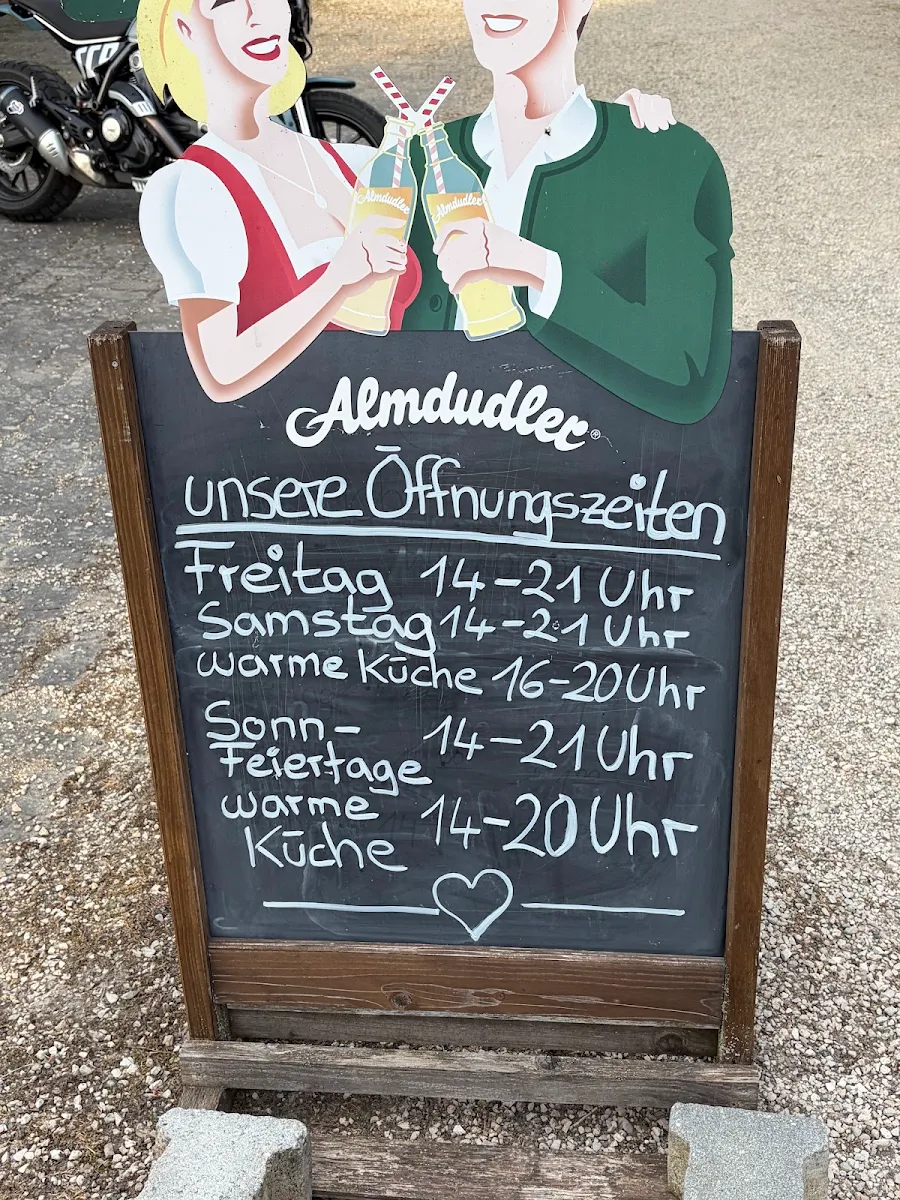 Almdudler
Almdudler
Almdudler®
unsere Öffnungszeiten
Freitag 14-21 Uhr
Samstag 14-21 Uhr
warme Küche 16-20 Uhr
Sonn- 14-21 Uhr
Feiertage
warme 14-20 Uhr
Küche